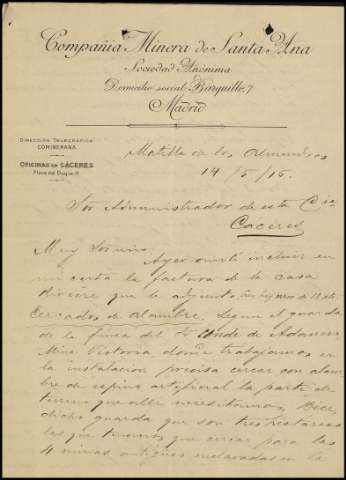 Compañia Minera de Santa Ana
Sociedad Anónima
Domicilio social: Barquillo, 7
Madrid
DIRECCIÓN TELEGRÁFICA
COMINERANA
OFICINAS EN CÁCERES
Plaza del Duque 11
Matilla de los Almendros
14/5/15.
Sor Administrador de esta Cia
Caceres
Muy Sr mio: Ayer omití incluir en
mi carta la factura de la casa
Riviere que le adjunto
Cercados de alambre. Segun el guarda
de la finca del Sr Conde de Adanero
Mina Victoria donde trabajamos en
la instalacion precisa cercar con alam-
bre de espino artificial la parte de
terreno que alli necesitamos y Dice
dicho guarda que son tres hectareas
las que tenemos que cercar para las
4 minas antiguas enclavadas en la